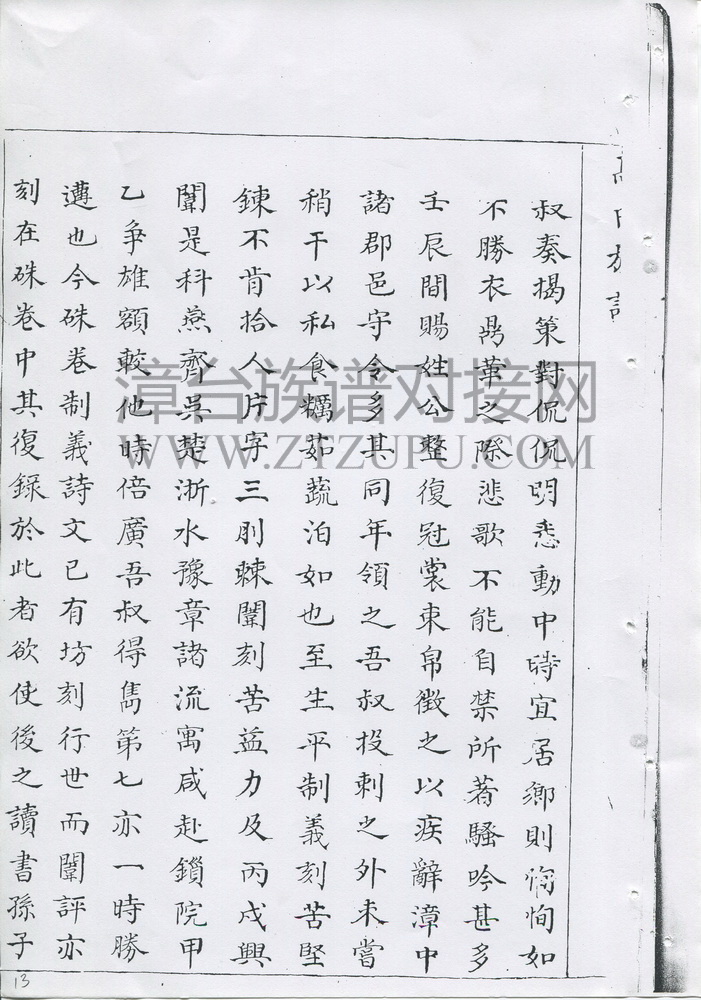 高氏族譜
叔奏揭策對侃侃明悉動中時宜居鄉則恂恂如
不勝衣鼎革之際悲歌不能自禁所著騷吟甚多
壬辰間賜姓公整復冠裳束帛徵之以疾辭漳中
諸郡邑守令多其同年領之吾叔投刺之外未嘗
稍干以私食糲茹蔬泊如也至生平制義刻苦堅
鍊不肯拾人片字三刖棘闈刻苦益力及丙戌興
闈是科燕齊吳楚浙水豫章諸流寓咸赴鎖院甲
乙爭雄額較他時倍廣吾叔得雋第七亦一時勝
遘也今硃卷制義詩文已有坊刻行世而闈評亦
刻在硃卷中其復錄於此者欲使後之讀書孫子
13
漳台族谱对接网
WWW.ZTZUPU.COM